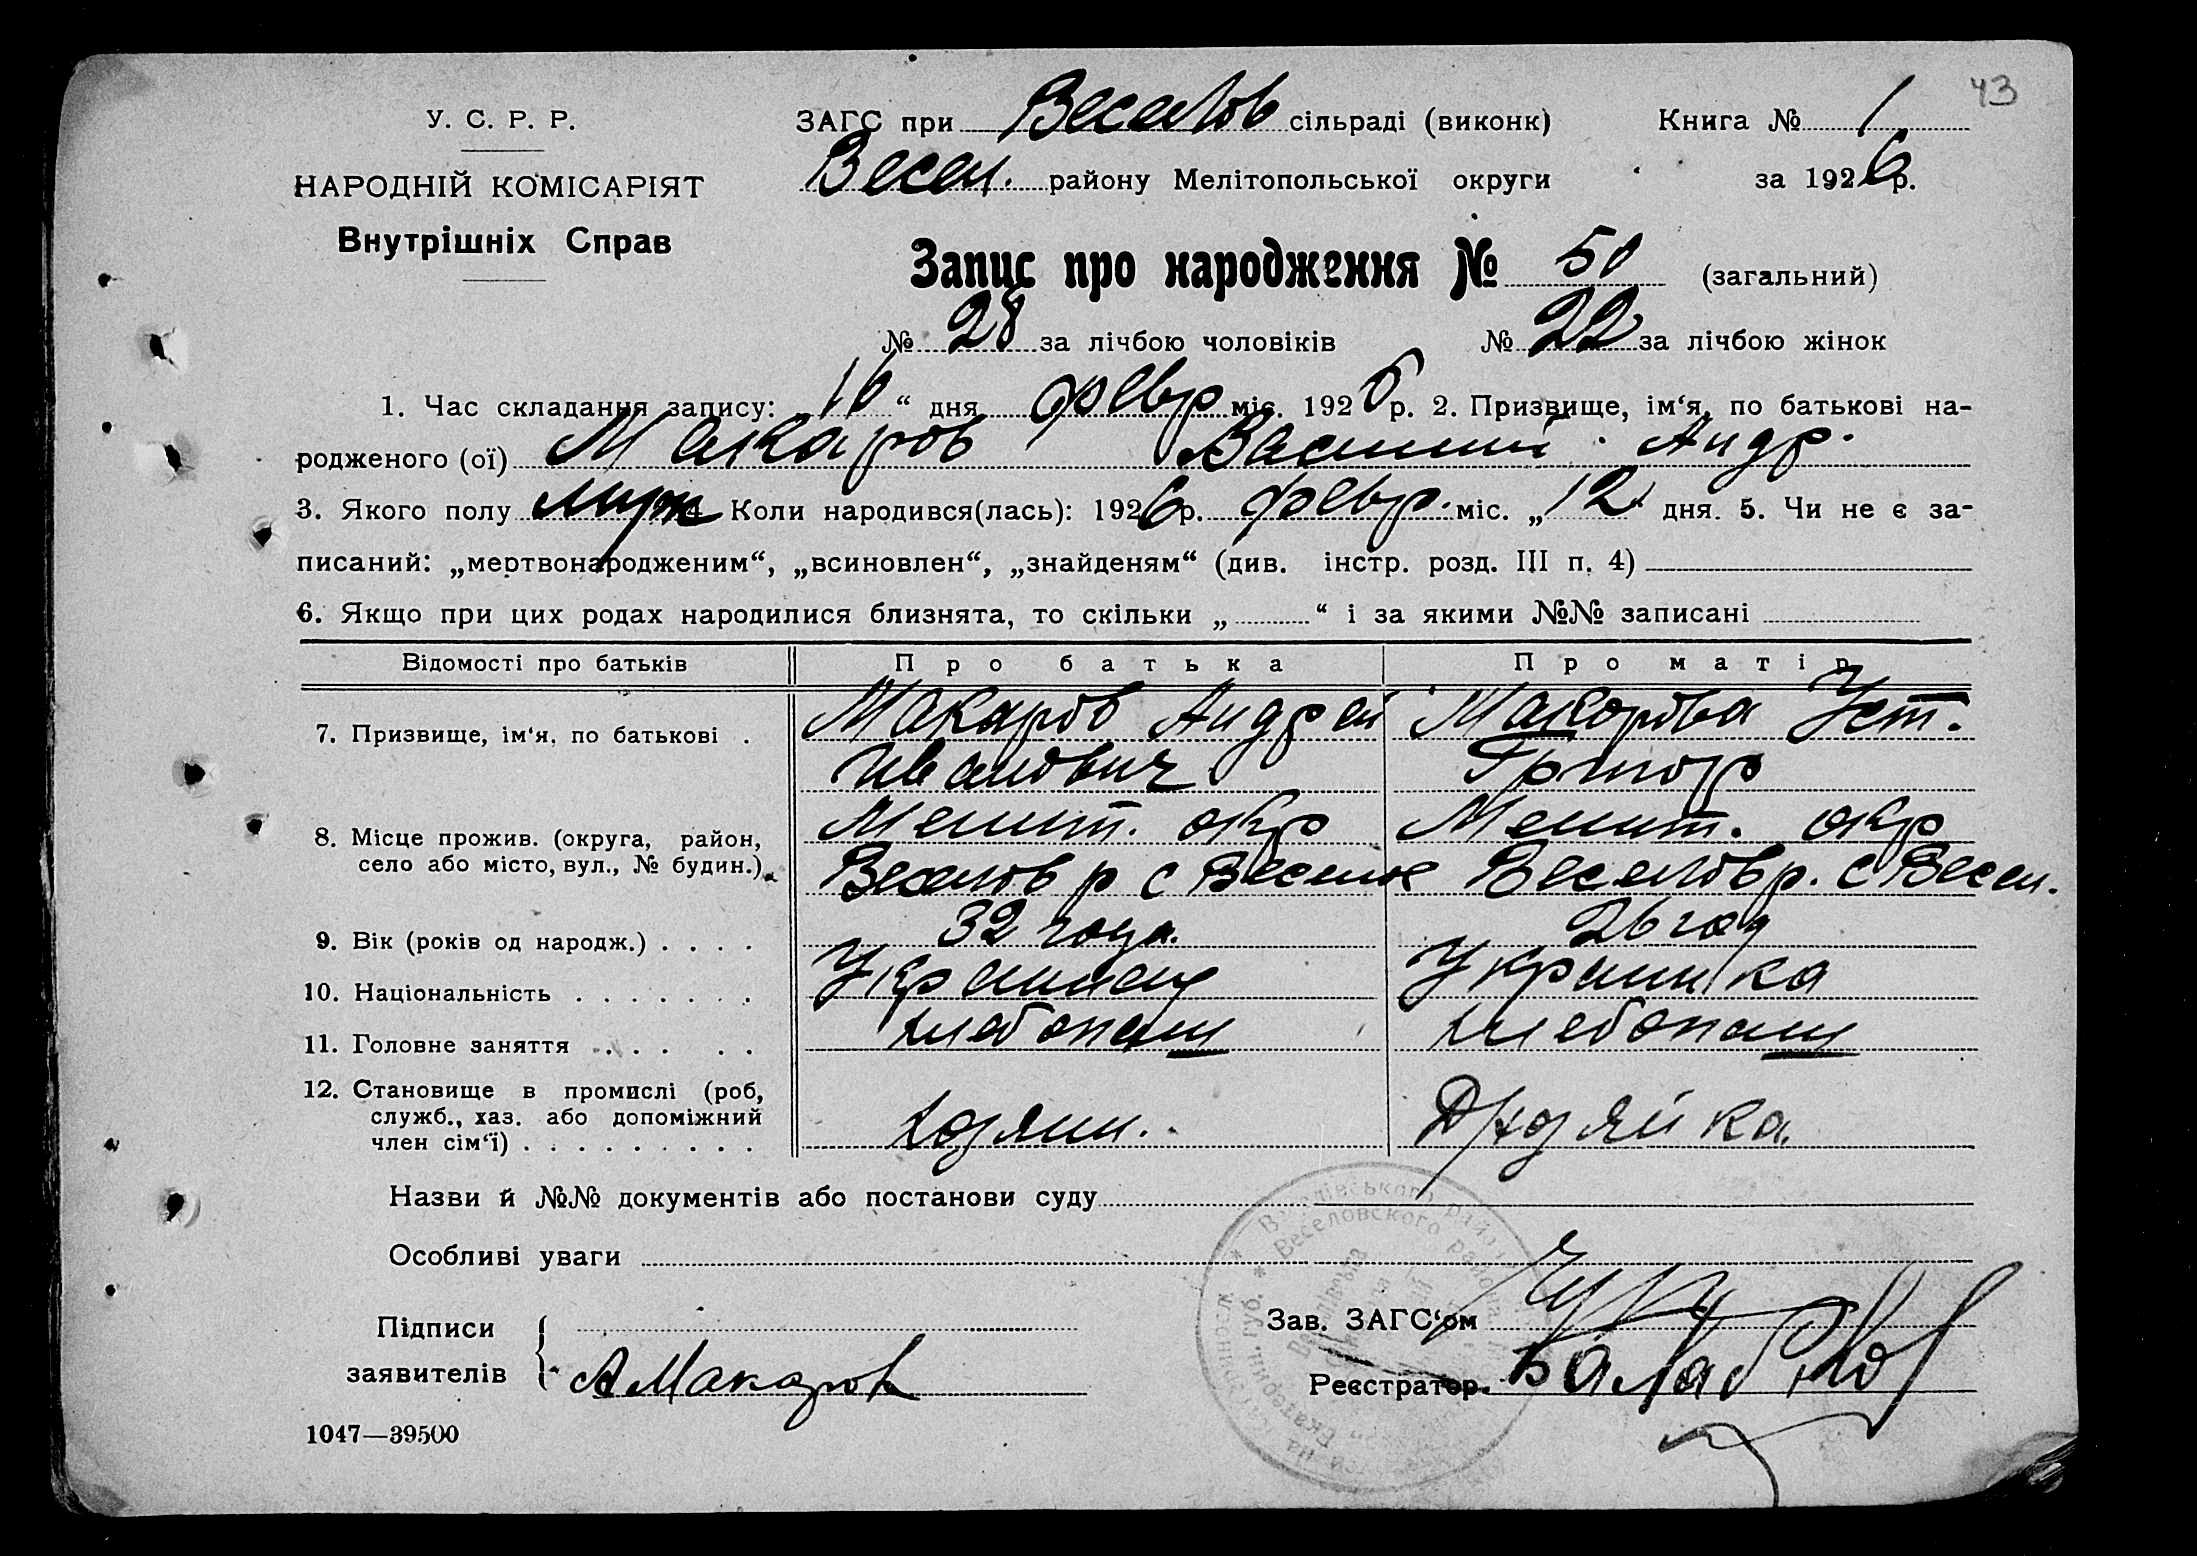 43
У. С. Р. Р.
НАРОДНІЙ КОМІСАРІЯТ
Внутрішніх Справ
ЗАГС при Веселов сільраді (виконк) Книга № 1
Весел. району Мелітопольської округи за 1926 р.
Запис про народження № 50 (загальний)
№ 28 за лічбою чоловіків № 22 за лічбою жінок
1. Час складання запису: 16 “ дня февр міс. 1926 р. 2. Призвище, ім‘я, по батькові на-
родженого (ої) Макаров Василий Андр.
3. Якого полу муж 4. Коли народився(лась): 1926 р. февр. міс. „ 12 “ дня. 5. Чи не є за-
писаний: „мертвонародженим“, „всиновлен“, „знайденям“ (див. інстр. розд. III п. 4)
6. Якщо при цих родах народилися близнята, то скільки „ “ і за якими №№ записані
Відомості про батьків Про батька Про матір
7. Призвище, ім‘я, по батькові . Макаров Андрей Макарова Уст.
Иванович Григор
8. Місце прожив. (округа, район, Мелит. окр Мелит. окр
село або місто, вул., № будин.) Веселов р с Веселое Веселов р. с Весел.
9. Вік (років од народж.) . . . . 32 года. 26 год
10. Національність . . . . . . . Украинец Украинка
11. Головне заняття . . . . . . хлебопаш хлебопаш
12. Становище в промислі (роб,
служб., хаз. або допоміжний хозяин. Д/хозяйка.
член сім‘ї) . . . . . . . . .
Назви й №№ документів або постанови суду
Особливі уваги
Підписи
заявителів А Макаров
Зав. ЗАГС‘ом
Реєстратор.
1047—39500